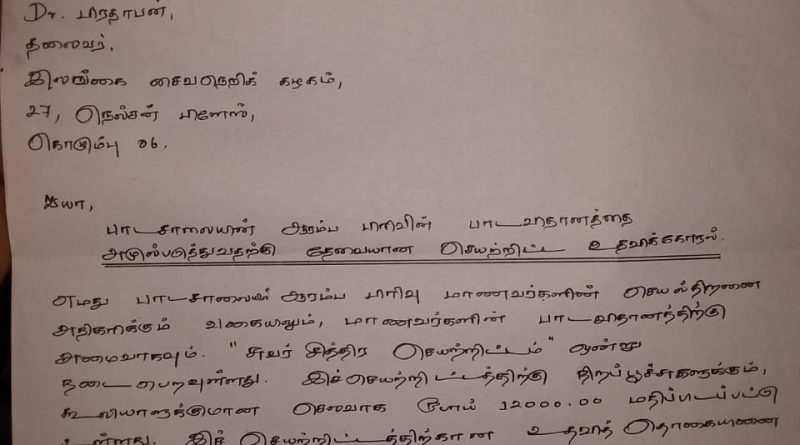 Dr. பிரதாபன்,
தலைவர்,
இலங்கை சைவநெறிக் கழகம்,
27, நெல்சன் பிளேஸ்,
கொழும்பு 06.
ஐயா,
பாடசாலையின் ஆரம்ப பிரிவின் பாடவிதானத்தை
அமுல்படுத்துவதற்கு தேவையான செயற்றிட்ட உதவிக்கோரல்.
எமது பாடசாலையில் ஆரம்ப பிரிவு மாணவர்களின் செயல்திறனை
அதிகரிக்கும் வகையிலும், மாணவர்களின் பாடவிதானத்திற்கு
அமைவாகவும். "சுவர் சித்திர செயற்றிட்டம்" ஒன்று
நடைபெறவுள்ளது. இச்செயற்றிட்டத்திற்கு நிறப்பூச்சுகளுக்கும்,
கூலியாளுக்குமான செலவாக ரூபாய் 12000.00 மதிப்பிடப்பட்டு
உள்ளது. இச் செயற்றிட்டத்திற்கான உதவித் தொகையினை